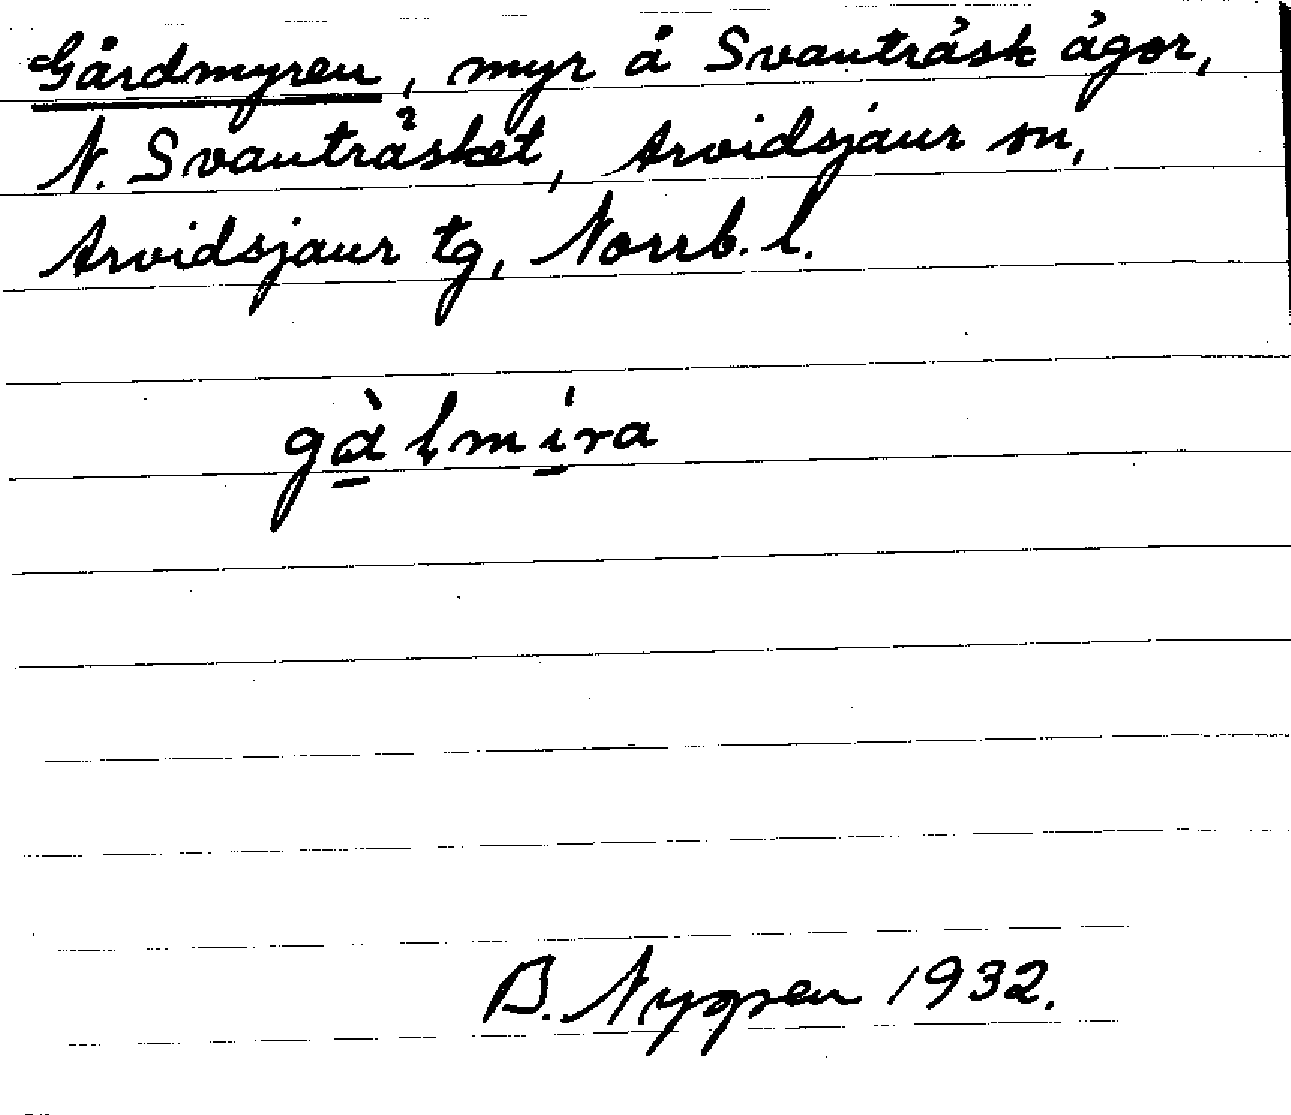 Gårdmyren, myr å Svanträsk ägor,
N. Svanträsket, Arvidsjaur sn,
Arvidsjaur tg, Norrb. l.
gàlmíra
B. Nygren 1932.